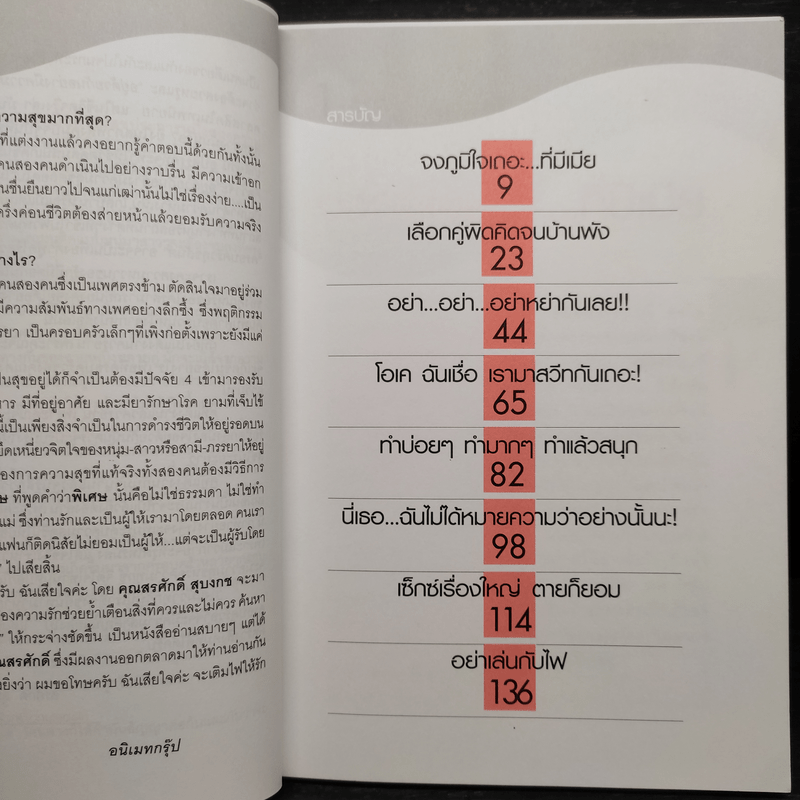 ความสุขมากที่สุด?
ที่แต่งงานแล้วคงอยากรู้คำตอบนี้ด้วยกันทั้งนั้น
คนสองคนดำเนินไปอย่างราบรื่น มีความเข้าอก
ชื่นยืนยาวไปจนแก่เฒ่านั้นไม่ใช่เรื่องง่าย....เป็น
ครึ่งค่อนชีวิตต้องส่ายหน้าแล้วยอมรับความจริง
คนสองคนซึ่งเป็นเพศตรงข้าม ตัดสินใจมาอยู่ร่วม
มีความสัมพันธ์ทางเพศอย่างลึกซึ้ง ซึ่งพฤติกรรม
เป็นครอบครัวเล็กๆที่เพิ่งก่อตั้งเพราะยังมีแค่
เป็นสุขอยู่ได้ก็จำเป็นต้องมีปัจจัย 4 เข้ามารองรับ
มีที่อยู่อาศัย และมียารักษาโรค ยามที่เจ็บไข้
นี้เป็นเพียงสิ่งจำเป็นในการดำรงชีวิตให้อยู่รอดบน
ยึดเหนี่ยวจิตใจของหนุ่ม-สาวหรือสามี-ภรรยาให้อยู่
องการความสุขที่แท้จริงทั้งสองคนต้องมีวิธีการ
ที่พูดคำว่าพิเศษ นั้นคือไม่ใช่ธรรมดา ไม่ใช่ทำ
แม่ ซึ่งท่านรักและเป็นผู้ให้เรามาโดยตลอด คนเรา
แฟนก็ติดนิสัยไม่ยอมเป็นผู้ให้...แต่จะเป็นผู้รับโดย
" ไปเสียสิ้น
รับ ฉันเสียใจค่ะ โดย คุณสรศักดิ์ สุบงกช จะมา
องความรักช่วยย้ำเตือนสิ่งที่ควรและไม่ควร ค้นหา
" ให้กระจ่างชัดขึ้น เป็นหนังสืออ่านสบายๆ แต่ได้
ณสรศักดิ์ ซึ่งมีผลงานออกตลาดมาให้ท่านอ่านกัน
ยิ่งว่า ผมขอโทษครับ ฉันเสียใจค่ะ จะเติมไฟให้รัก
อนิเมทกรุ๊ป
สารบัญ
จงภูมิใจเถอะ...ที่มีเมีย
9
เลือกคู่ผิดคิดจนบ้านพัง
23
อย่า...อย่า...อย่าหย่ากันเลย!!
44
โอเค ฉันเชื่อ เรามาสวีทกันเถอะ!
65
ทำบ่อยๆ ทำมากๆ ทำแล้วสนุก
82
นี่เธอ...ฉันไม่ได้หมายความว่าอย่างนั้นนะ!
98
เซ็กซ์เรื่องใหญ่ ตายก็ยอม
114
อย่าเล่นกับไฟ
136